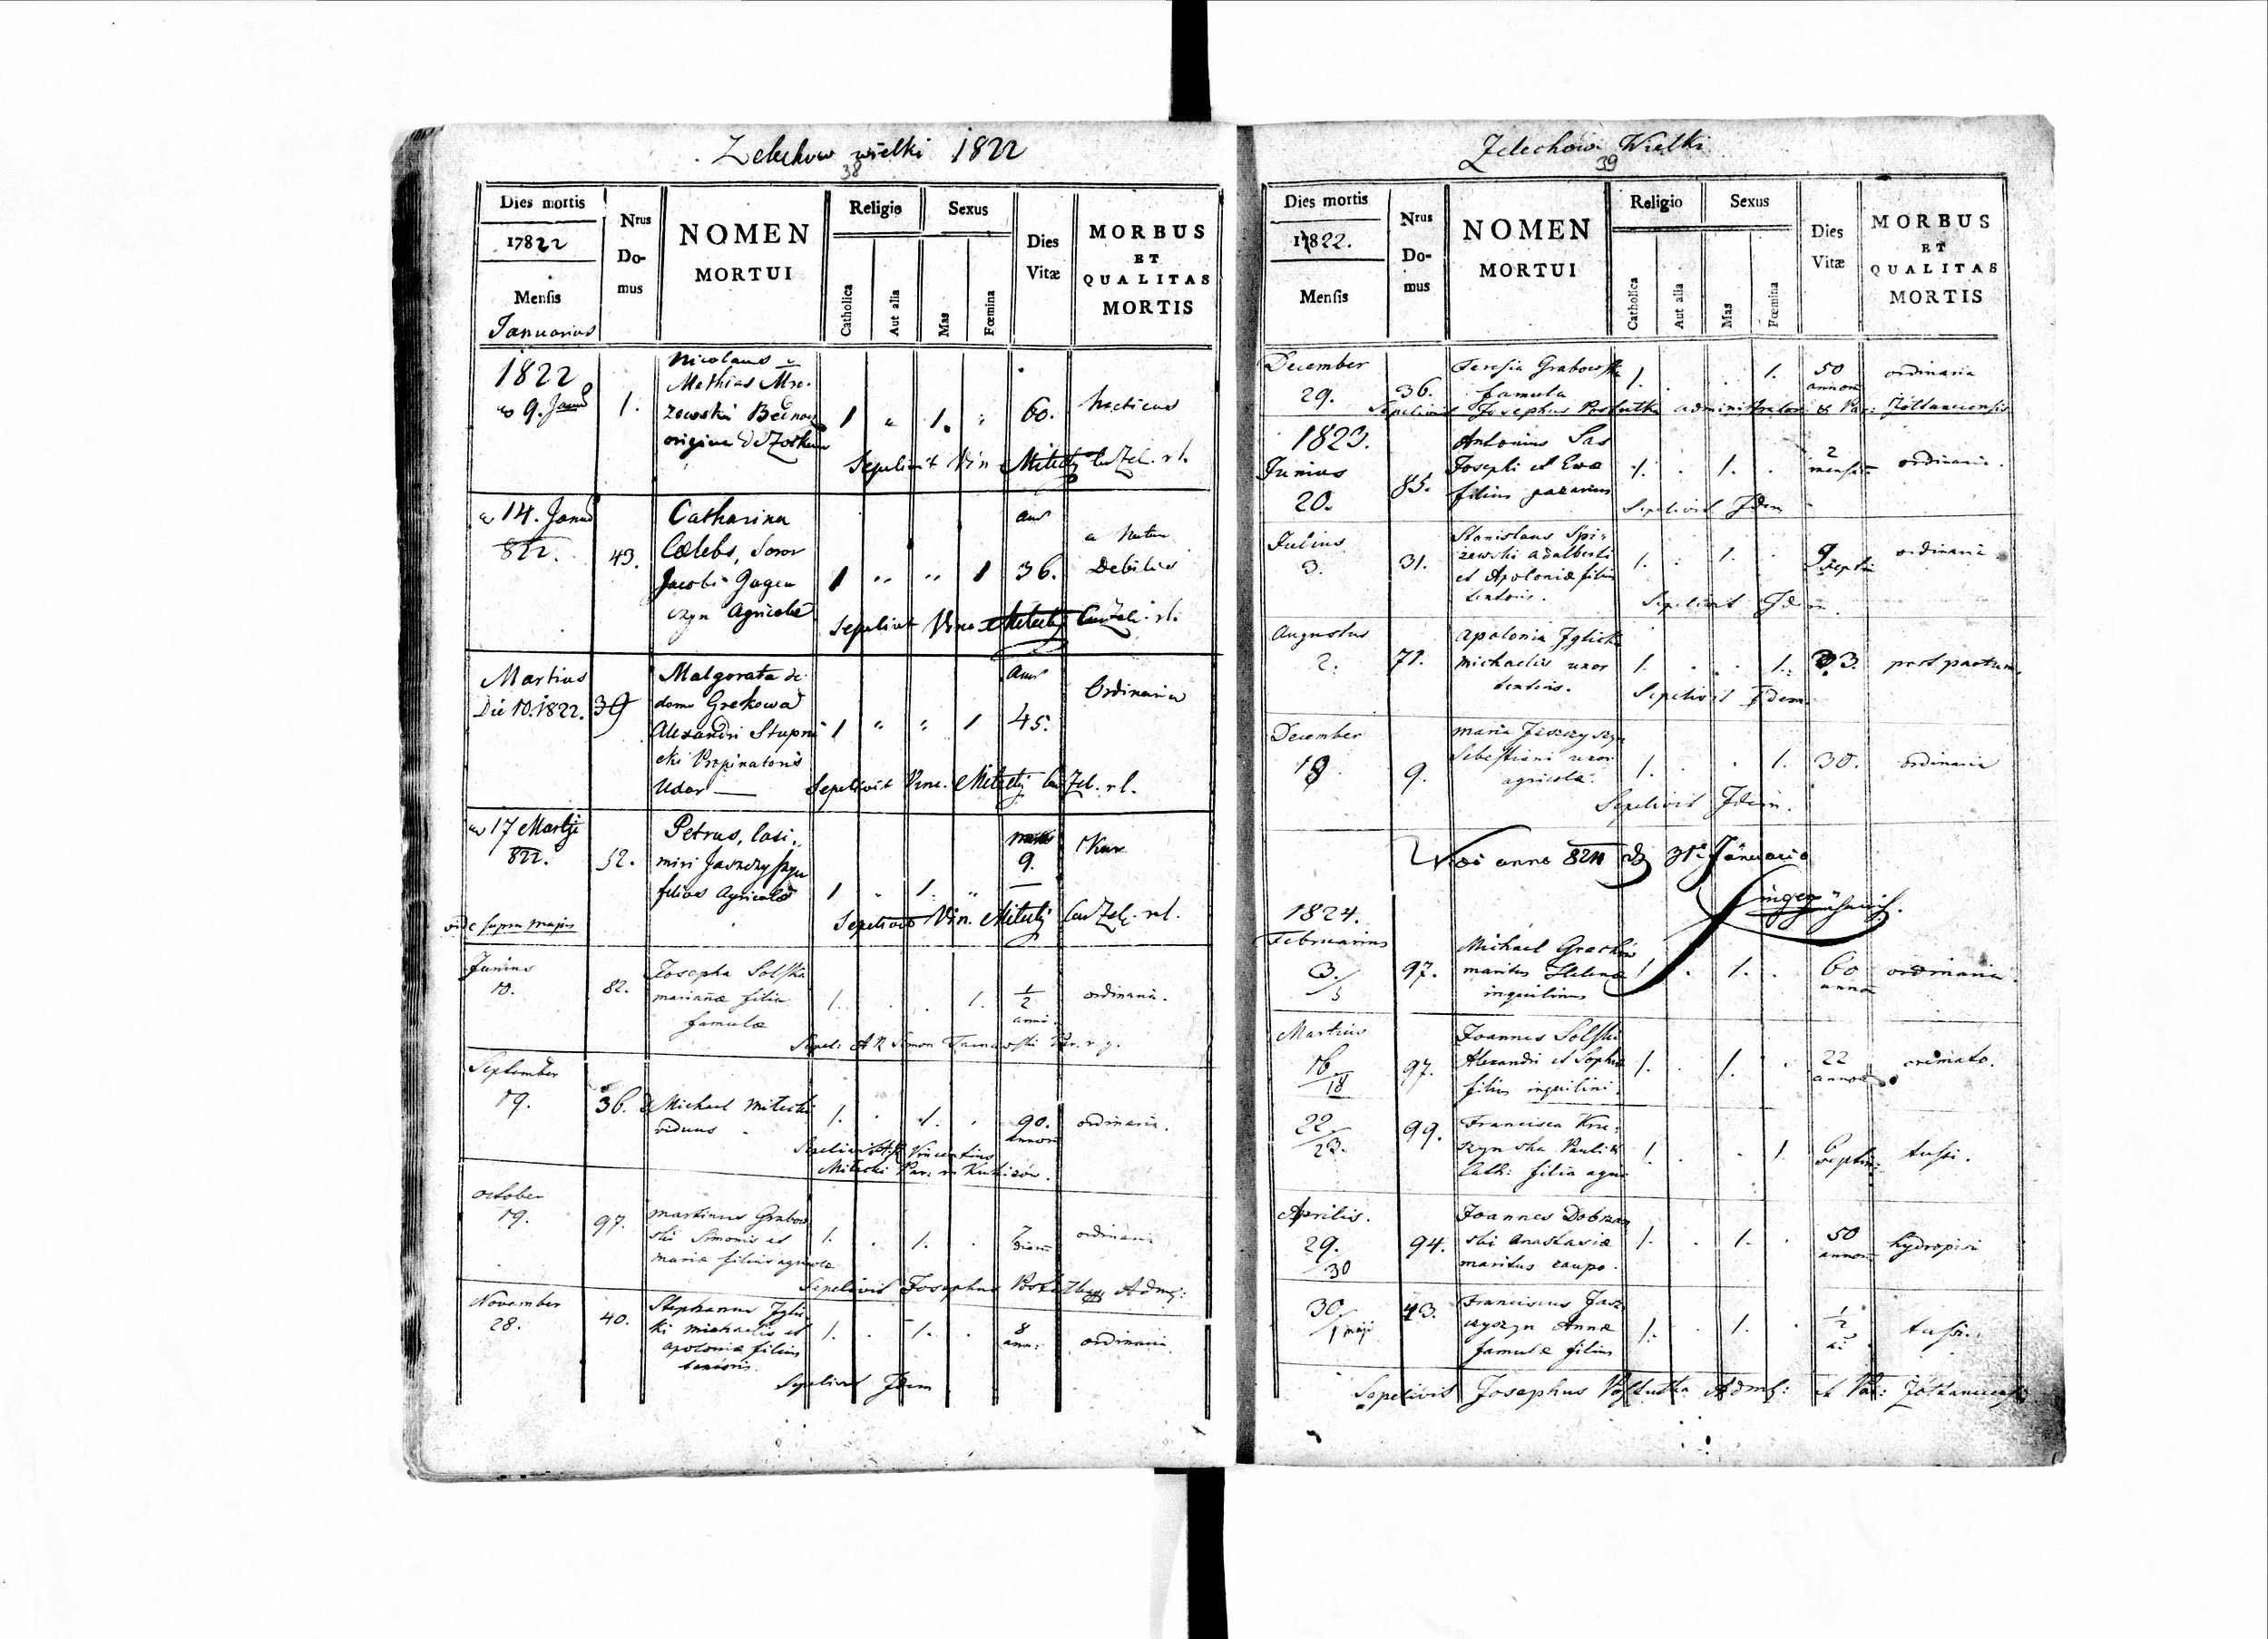 Zelechow wielki 1822
38
Dies mortis
1782 2
Mensis
Januarius
Nrus
Do-
mus
NOMEN
MORTUI
Religio
Catholica
Aut alia
Sexus
Mas
Fœmina
Dies
Vitæ
MORBUS
ET
QUALITAS
MORTIS
1822
9. Janu
1.
Nicolaus
Mathias Mro-
zowski
origine de
1 " 1. "
60.
hecticus
Sepelivit Vin Mitecky Cur Zel. r. l.
14. Janu
822.
43.
Catharina
Cælebs, Soror
Jacobi Gagen
czyn Agricolæ
1 " " 1
36.
Debilis
Sepelivit Vinc Mitecky Cur Zel. r. l.
Martius
Die 10. 1822.
39
Malgorata de
domo Grekowa
Alexandri Stupni
cki Propinatoris
Uxor —
1 " " 1
45.
Ordinaria
Sepelivit Vinc. Mitecky Cur Zel. r. l.
17 Martij
822.
52.
Petrus, Casi-
miri Jaszczyszyn
filius Agricolæ
1 " 1. "
9.
Sepelivit Vin. Mitecky Cur Zel. r. l.
vide supra
Junius
10.
82.
Josepha Solska
marianæ filia
famulæ
1. . . 1.
1/2
anni
ordinaria.
Sepel: A R Simon Tarnawski Par. r. g.
September
19.
36.
Michael Mitecki
viduus
1. . 1. .
90.
annor
ordinaria.
Sepelivit A R Vincentius
Mitecki Par: in Kutkizow.
October
19.
97.
Martinus Grabow
ski Simonis et
mariæ filius agricolæ
1. . 1. .
7
dierum
ordinaria
Sepelivit Josephus Adm:
November
28.
40.
Stephanus Iglic
ki michaelis et
apoloniæ filius
textoris.
1. . 1. .
8
ann:
ordinaria
Sepelivit Idem
Zelechów Wielki
39
Dies mortis
17822.
Mensis
Nrus
Do-
mus
NOMEN
MORTUI
Religio
Catholica
Aut alia
Sexus
Mas
Fœmina
Dies
Vitæ
MORBUS
ET
QUALITAS
MORTIS
December
29.
36.
Teresia Grabowska
famula
1. . . 1.
50
annor
ordinaria
Sepelivit Josephus Poslutka administrator et Par: Zoltancensis
1823.
Junius
20.
85.
Antonius Sas
Josephi et Evæ
filius
1. . 1. .
2
mensium
ordinaria.
Sepelivit Idem
Julius
3.
31.
Stanislaus Spi-
zewski adalberti
et Apoloniæ filius
textoris.
1. . 1. .
ordinaria
Sepelivit Idem.
Augustus
2.
71.
Apolonia Iglicka
michaelis uxor
textoris.
1. . . 1.
33.
post partum.
Sepelivit Idem.
December
19.
9.
Maria Jaszczyszyn
Sebastiani uxor
agricolæ.
1. . . 1.
30.
ordinaria
Sepelivit Idem.
anno 824 31 Januario
1824.
Februarius
3./5
97.
Michael Grechów
maritus Helenæ
inquilinus
1. . 1. .
60
annor
ordinaria.
Martius
16/18
97.
Joannes Solski
Alexandri et Sophiæ
filius inquilini
1. . 1. .
22
annor
cremato.
22/23.
99.
Francisca Kru-
szynska Pauli et
Cath: filia agri
1. . . 1
6
septim:
tussi.
Aprilis.
29./30
94.
Joannes Dobrzan
ski Anastasiæ
maritus caupo.
1. . 1. .
50
annor
hydropisi
30./1 maji
43.
Franciscus Jasz
czyszyn Annæ
famulæ filius
1. . 1. .
1/2
a:
tussi.
Sepelivit Josephus Poslutka Adm: et Par: Zoltancensis